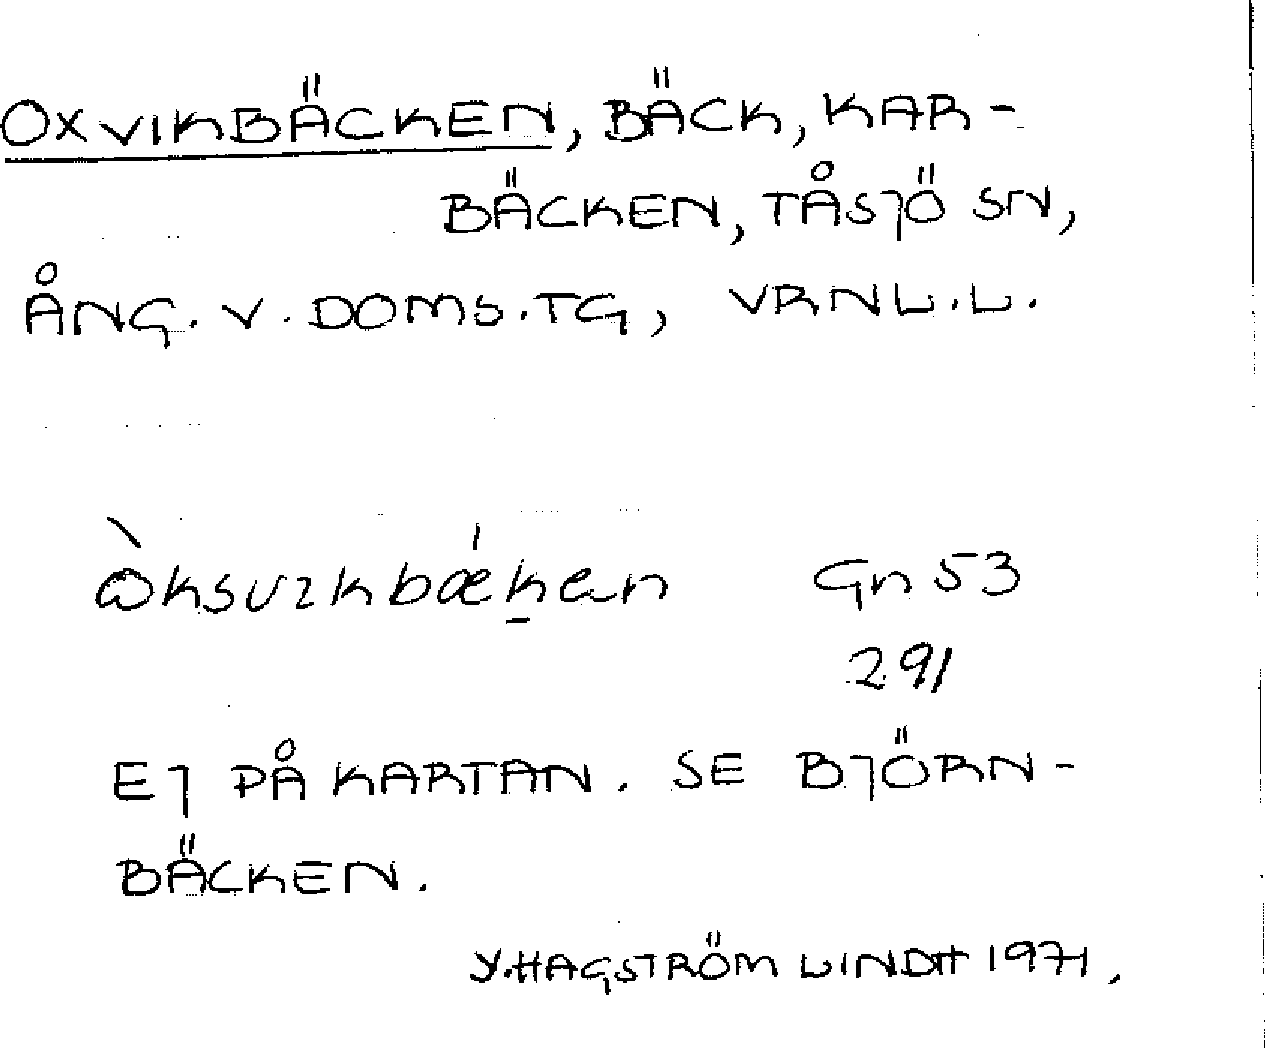 OXVIKBÄCKEN, BÄCK, KAR-
BÄCKEN, TÅSJÖ SN,
ÅNG. V. DOMS.TG, VRNL.L.
ὼksvikbǽk̠en Gn 53
291
EJ PÅ KARTAN. SE BJÖRN-
BÄCKEN.
Y.HAGSTRÖM LINDH 1971.